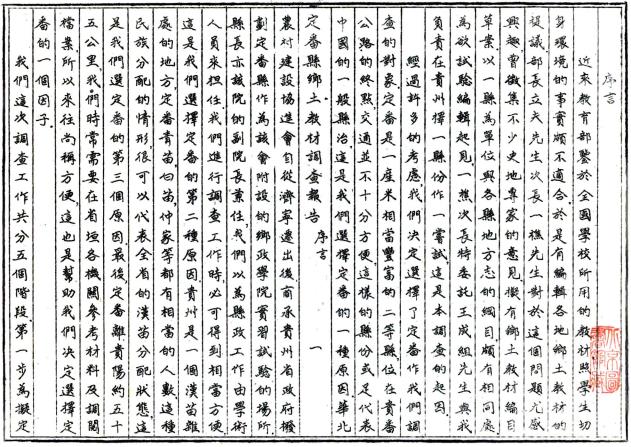 序言
近來教育部鑒於全國學校所用的教材與學生切
身環境的事實頗不適合於是有編輯各地鄉土教材的
提議部長立夫先生次長一樵先生對於這個問題尤感
興趣曾徵集不少史地專家的意見擬有鄉土教材編目
草案以一縣為單位與各縣地方志的綱目頗有相同處
為欲試驗編輯起見一樵次長特委託王成組先生與我
負責在貴州擇一縣份作一嘗試這是本調查的起因
經過許多的考慮我們決定選擇了定番作我們調
查的對象定番是一座米相當豐富的二等縣位在貴番
公路的終點交通並不十分方便這樣的縣份或是代表
中國的一般縣治這是我們選擇定番的一種原因華北
定番縣鄉土教材調查報告 序言 一
農村建設協進會自從濟寧遷出後商承貴州省政府撥
劃定番縣作為該會附設的鄉政學院實習試驗的場所
縣長亦該院的副院長兼任我們以為縣政工作由學術
人員來担任我們進行調查工作時必可得到相當方便
這是我們選擇定番的第二種原因貴州是一個漢苗雜
處的地方定番青苗白苗仲家等都有相當的人數這種
民族分配的情形很可以代表全省的漢苗分配狀態這
是我們選定番的第三個原因最後定番離貴陽約五十
五公里我們時常需要在省垣各機關參考材料及調閱
檔案所以來往尚稱方便這也是幫助我們決定選擇定
番的一個因子
我們這次調查工作共分五個階段第一步為擬定